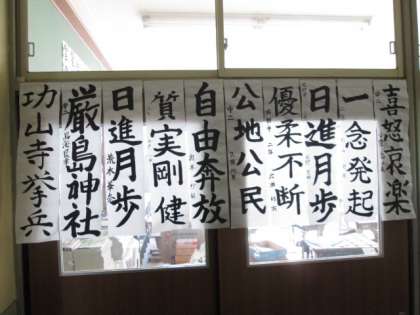 喜怒哀楽
一念発起
日進月歩
優柔不断
公地公民
自由奔放
質実剛健
日進月歩
厳島神社
功山寺挙兵